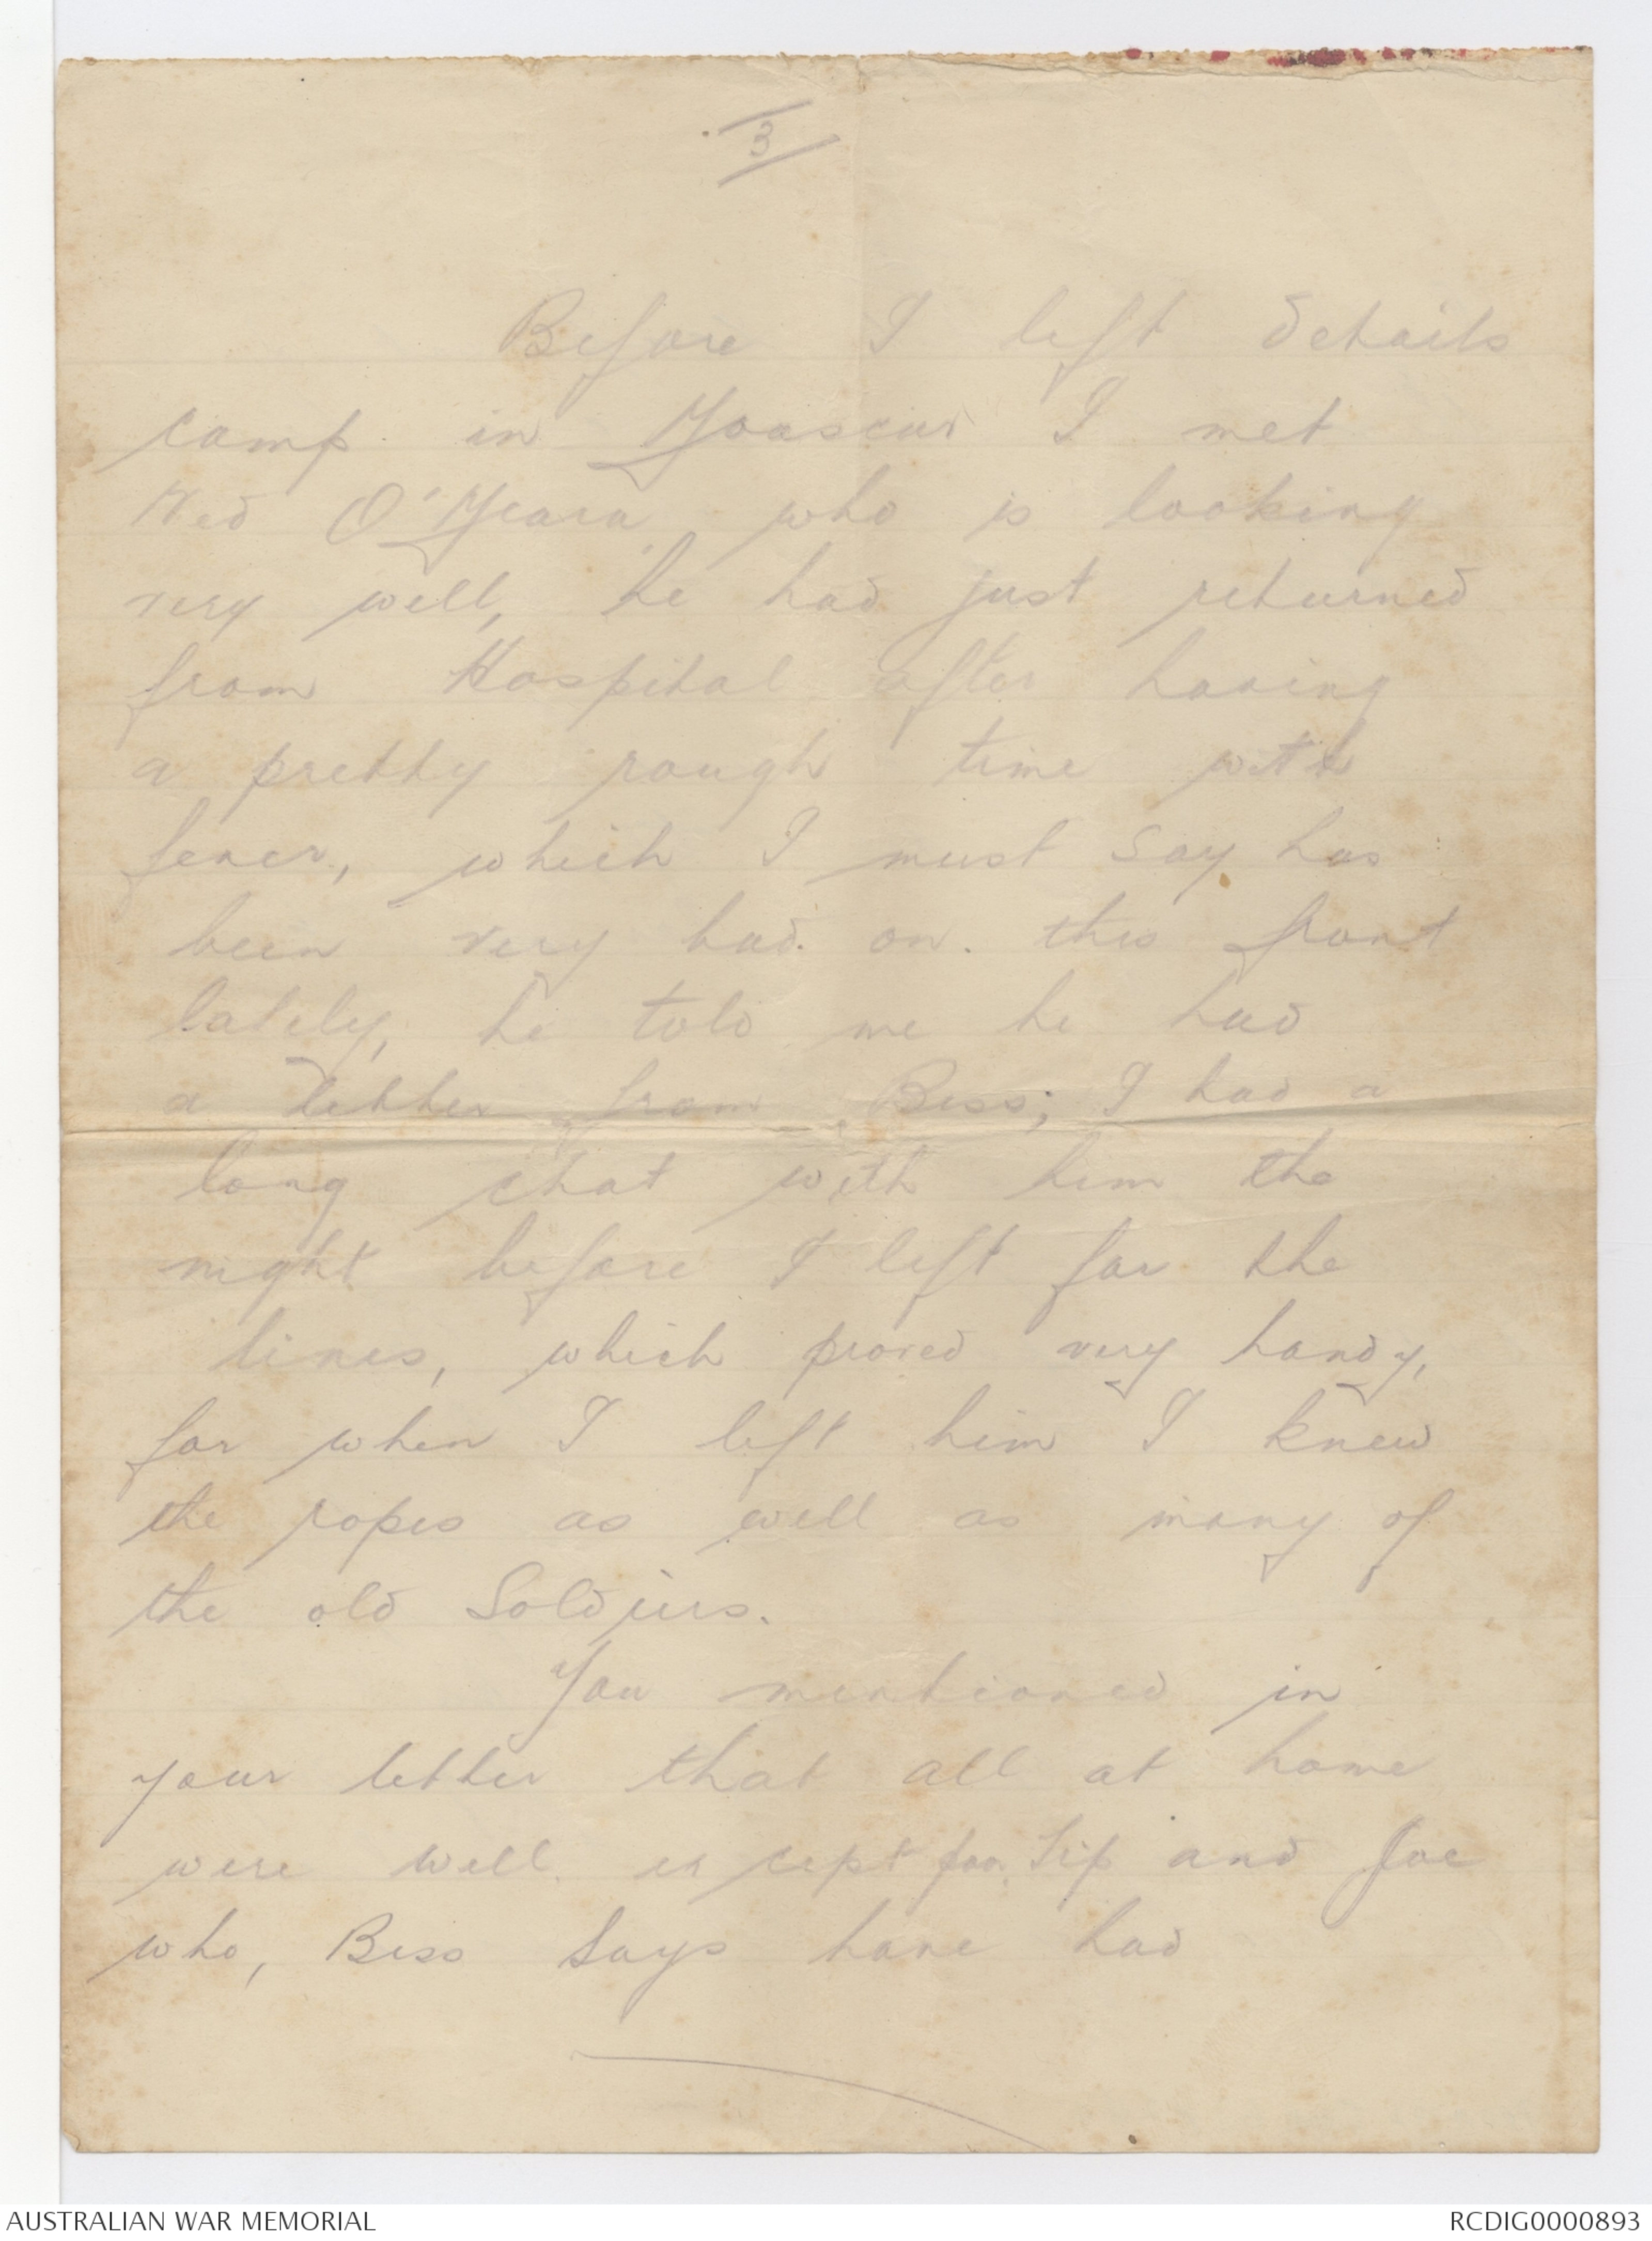 3
Before I left details
camp in Moascar I met
Ned O'Meara, who is looking
very well, he had just returned
from Hospital after having
a pretty rough time with
fever, which I must say has
been very bad on this front
lately, he told me he had
a letter from Bess; I had a
long chat with him the
night before I left for the
lines, which proved very handy,
for when I left him I knew
the ropes as well as many of
the old Soldiers.
You mentioned in
your letter that all at home
were well except for and Joe
who, Bess says have had
AUSTRALIAN WAR MEMORIAL
RCDIG0000893